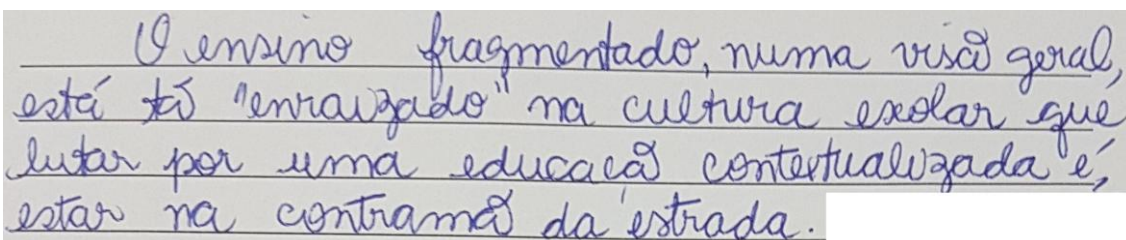 O ensino fragmentado, numa visão geral,
está tão "enraizado" na cultura escolar que
lutar por uma educação contextualizada é,
estar na contramão da estrada.